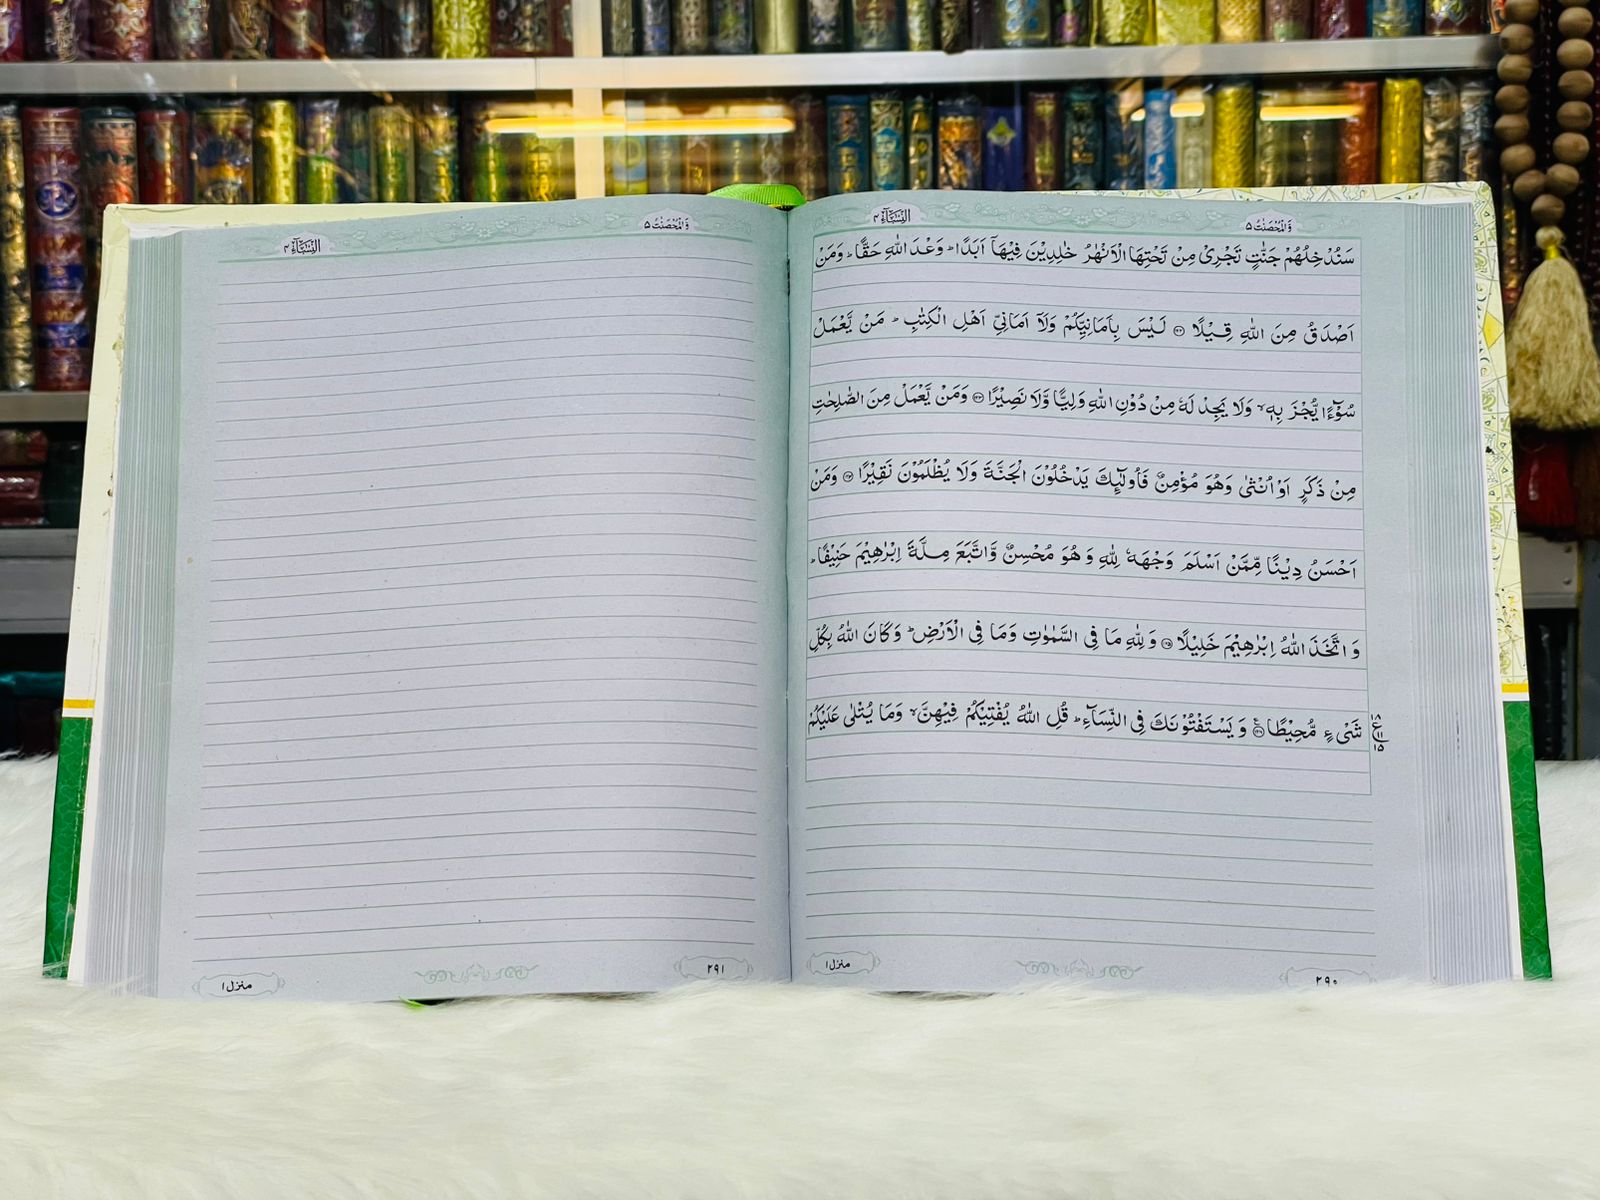 وَالْمُحْصَنٰتُ ۵
النِّسَآءِ ۴
سَنُدْخِلُهُمْ جَنّٰتٍ تَجْرِیْ مِنْ تَحْتِهَا الْاَنْهٰرُ خٰلِدِیْنَ فِیْهَاۤ اَبَدًا ؕ وَعْدَ اللّٰهِ حَقًّا ؕ وَمَنْ
اَصْدَقُ مِنَ اللّٰهِ قِیْلًا ﴿۱۲۲﴾ لَیْسَ بِاَمَانِیِّكُمْ وَلَاۤ اَمَانِیِّ اَهْلِ الْكِتٰبِ ؕ مَنْ یَّعْمَلْ
سُوْٓءًا یُّجْزَ بِهٖ ۙ وَلَا یَجِدْ لَهٗ مِنْ دُوْنِ اللّٰهِ وَلِیًّا وَّلَا نَصِیْرًا ﴿۱۲۳﴾ وَمَنْ یَّعْمَلْ مِنَ الصّٰلِحٰتِ
مِنْ ذَكَرٍ اَوْ اُنْثٰی وَهُوَ مُؤْمِنٌ فَاُولٰٓئِكَ یَدْخُلُوْنَ الْجَنَّةَ وَلَا یُظْلَمُوْنَ نَقِیْرًا ﴿۱۲۴﴾ وَمَنْ
اَحْسَنُ دِیْنًا مِّمَّنْ اَسْلَمَ وَجْهَهٗ لِلّٰهِ وَهُوَ مُحْسِنٌ وَّاتَّبَعَ مِلَّةَ اِبْرٰهِیْمَ حَنِیْفًا ؕ
وَاتَّخَذَ اللّٰهُ اِبْرٰهِیْمَ خَلِیْلًا ﴿۱۲۵﴾ وَلِلّٰهِ مَا فِی السَّمٰوٰتِ وَمَا فِی الْاَرْضِ ؕ وَكَانَ اللّٰهُ بِكُلِّ
شَیْءٍ مُّحِیْطًا ﴿۱۲۶﴾ وَیَسْتَفْتُوْنَكَ فِی النِّسَآءِ ؕ قُلِ اللّٰهُ یُفْتِیْكُمْ فِیْهِنَّ ۙ وَمَا یُتْلٰی عَلَیْكُمْ
۱۸
ع
۱۱
۱۵
۲۹۰
منزل ۱
وَالْمُحْصَنٰتُ ۵
النِّسَآءِ ۴
۲۹۱
منزل ۱